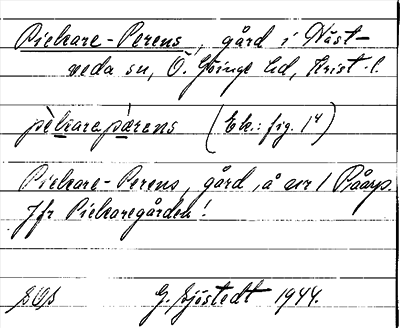 Pickare-Perens, gård i Näst-
veda sn, Ö. Göinge hd, Krist. l.
pèkarepärens (Ek.: fig. 14)
Pickare-Perens, gård, å nr 1 Råarp.
Jfr Pickaregården!
G. Sjöstedt 1944.